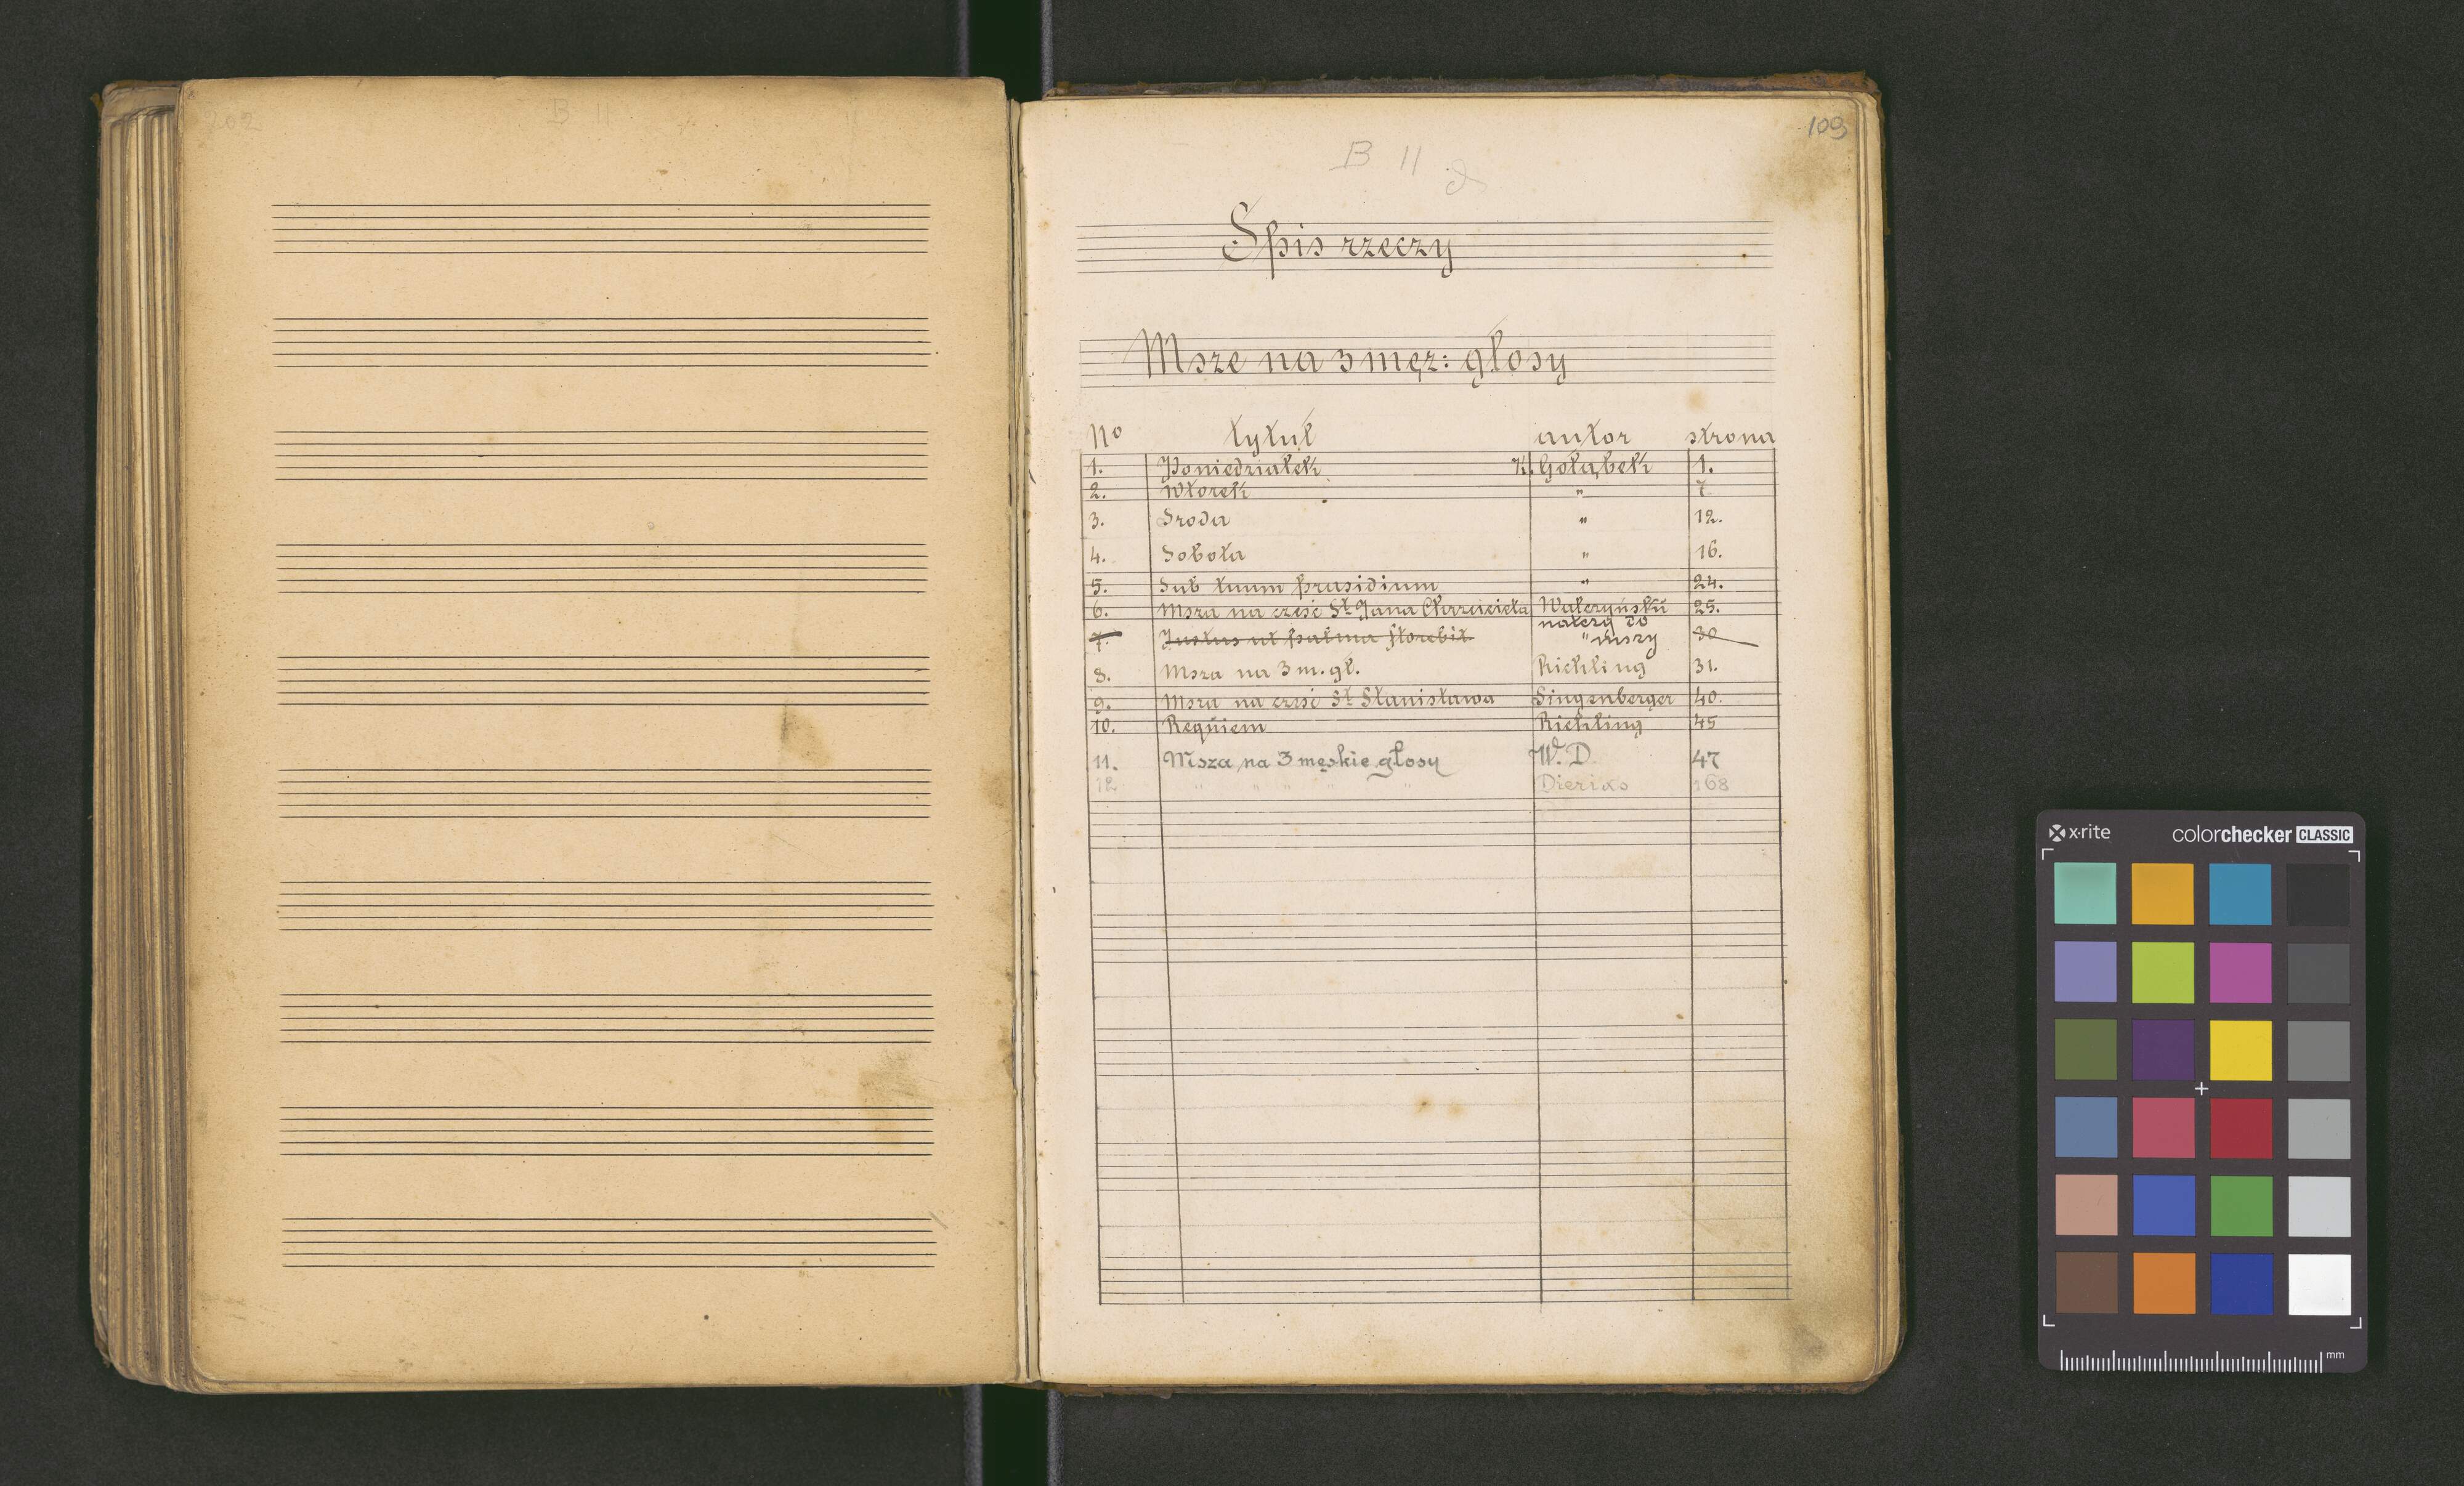 202
B 11
109
B 11
Spis rzeczy
Msze na 3 męz: głosy
No tytuł autor strona
1. Poniedziałek X. Gołąbek 1.
2. Wtorek " 7
3. Sroda " 12.
4. Sobota " 16.
5. Sub tuum prasidium " 24.
6. Msza na cześć St. Jana Chrzciciela Walczyński 25.
należy do
7. Justus ut palma florebit "mszy 30
8. Msza na 3 m. gł. Richling 31.
9. Msza na cześć St. Stanisława Singenberger 40.
10. Requiem Richling 45
11. Msza na 3 męskie głosy W. D. 47
12 " " " " " Dierixs 168
x-rite colorchecker CLASSIC
mm